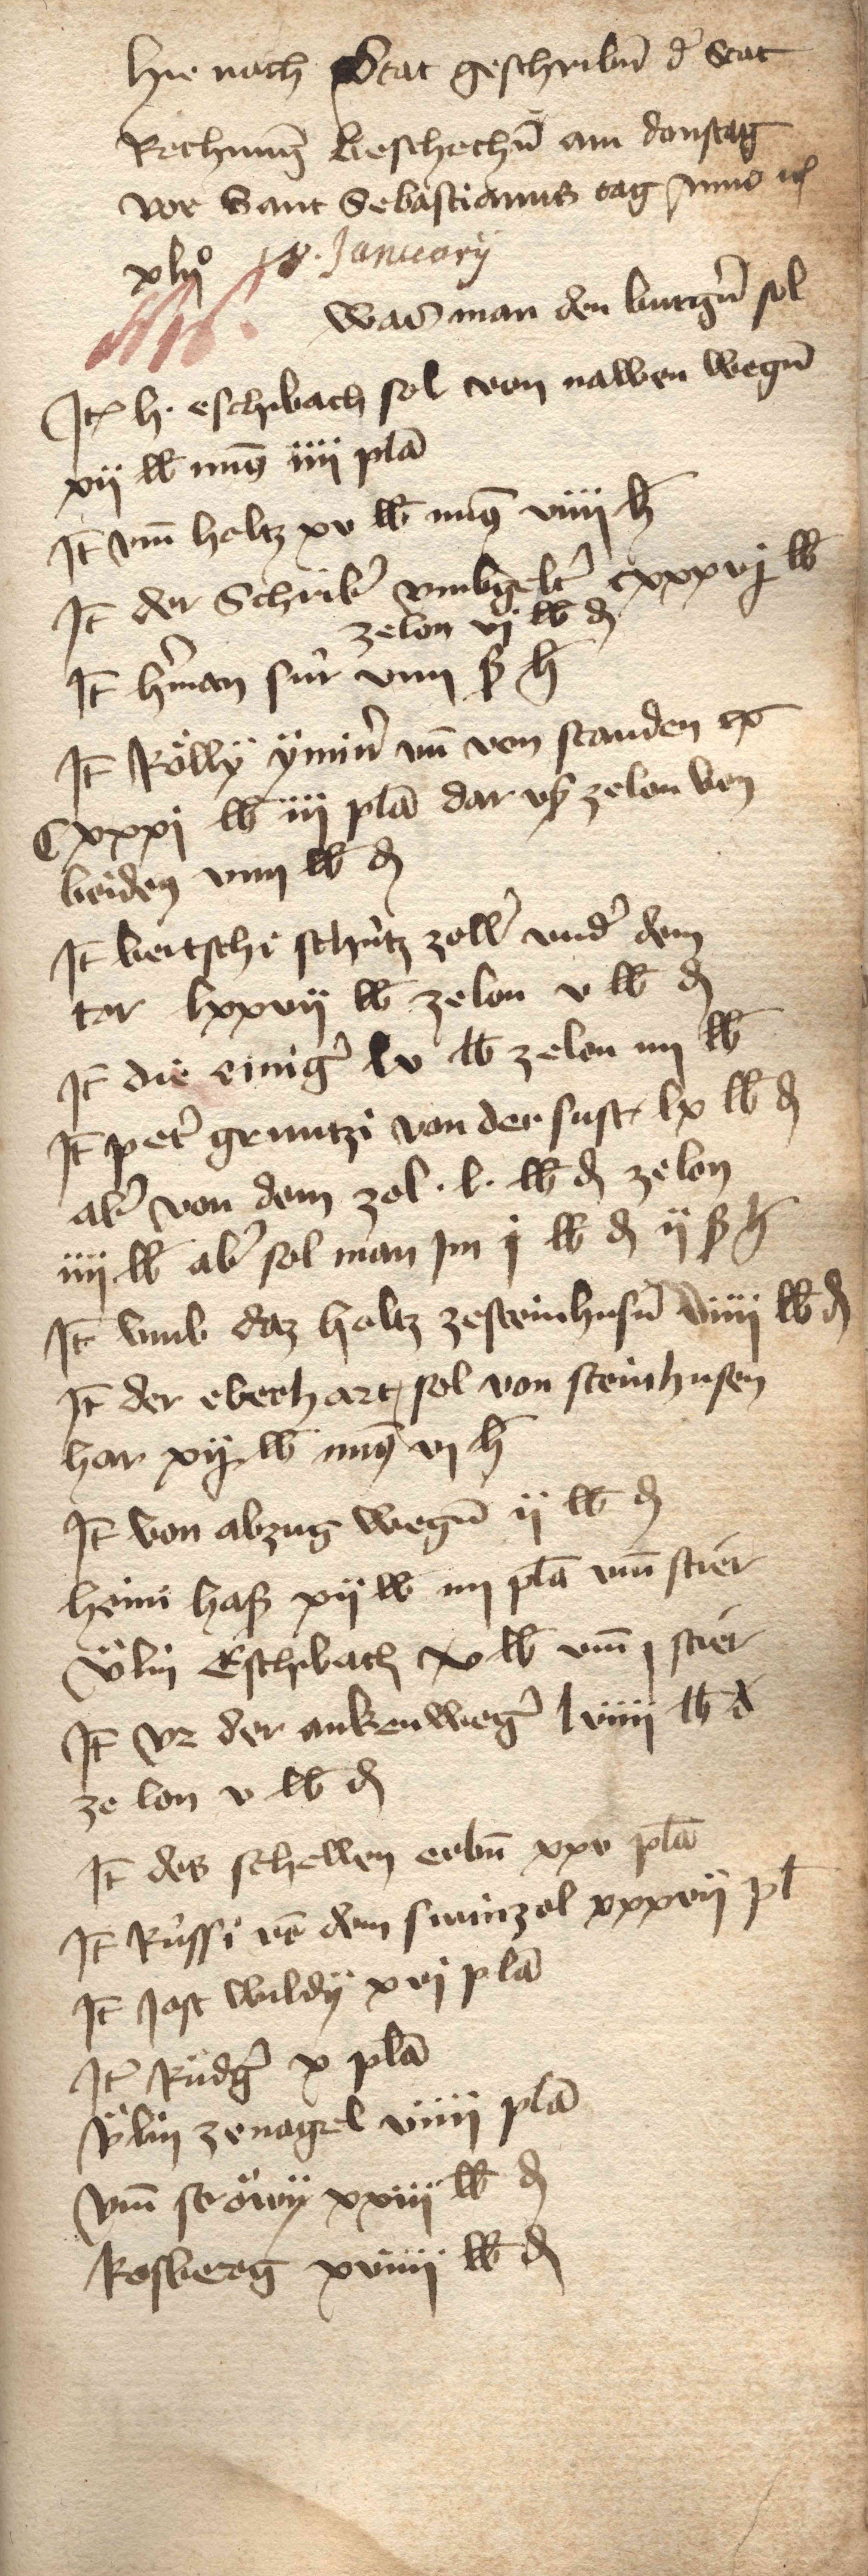 hie nach Stat geschribn̄ d' Stat
Rechnung beschechn̄ am donstag
vor Sant Sebastianus tag Anno
xlijº 18. January
was man den burgn̄ sol
Itē h. eschibach sol von nawen wegn̄
xij lb mīg iiij plā
It̄ vm̄ holtz xv lb mīg viiij h̄
It̄ der Schrib' vmbgelt' cxxxvj lb
zelon vj lb d
It̄ h'man sur viiij ß h̄
It̄ Rölly ÿmin' vn̄ von standen
Cxxxj lb iij plā dar vß zelon von
beiden viiij lb d
It̄ bertschi schütz zoll' vnd' dem
tor lxxvij lb zelon v lb d
It̄ die einig' lv lb zelon iiij lb
It̄ pet' gruntzi von der sust lx lb d
ab' von dem zol . l . lb d zelon
iiij lb ab' sol man Im j lb d ij ß h̄
It̄ vmb daz holtz zesteinhusn̄ viiij lb d
It̄ der eberhart sol von steinhusen
har xij lb mīg vj h̄
It̄ von abzug wegn̄ ij lb d
heini haß xij lb iiij plā vm̄ stier
Ůlin Eschibach xv lb vm̄ j stier
It̄ vz der ankenweg' lviiij lb d
ze lon v lb d
It̄ des schellen erbn̄ xxv plā
It̄ Rüssi vō dem swinzol xxxvij pl
It̄ Jost wildÿ xvj plā
It̄ Rüdg' x plā
Ůlin zenagel viiij plā
Vm̄ ströwÿ xxiij lb d
Rosberg xviiij lb d